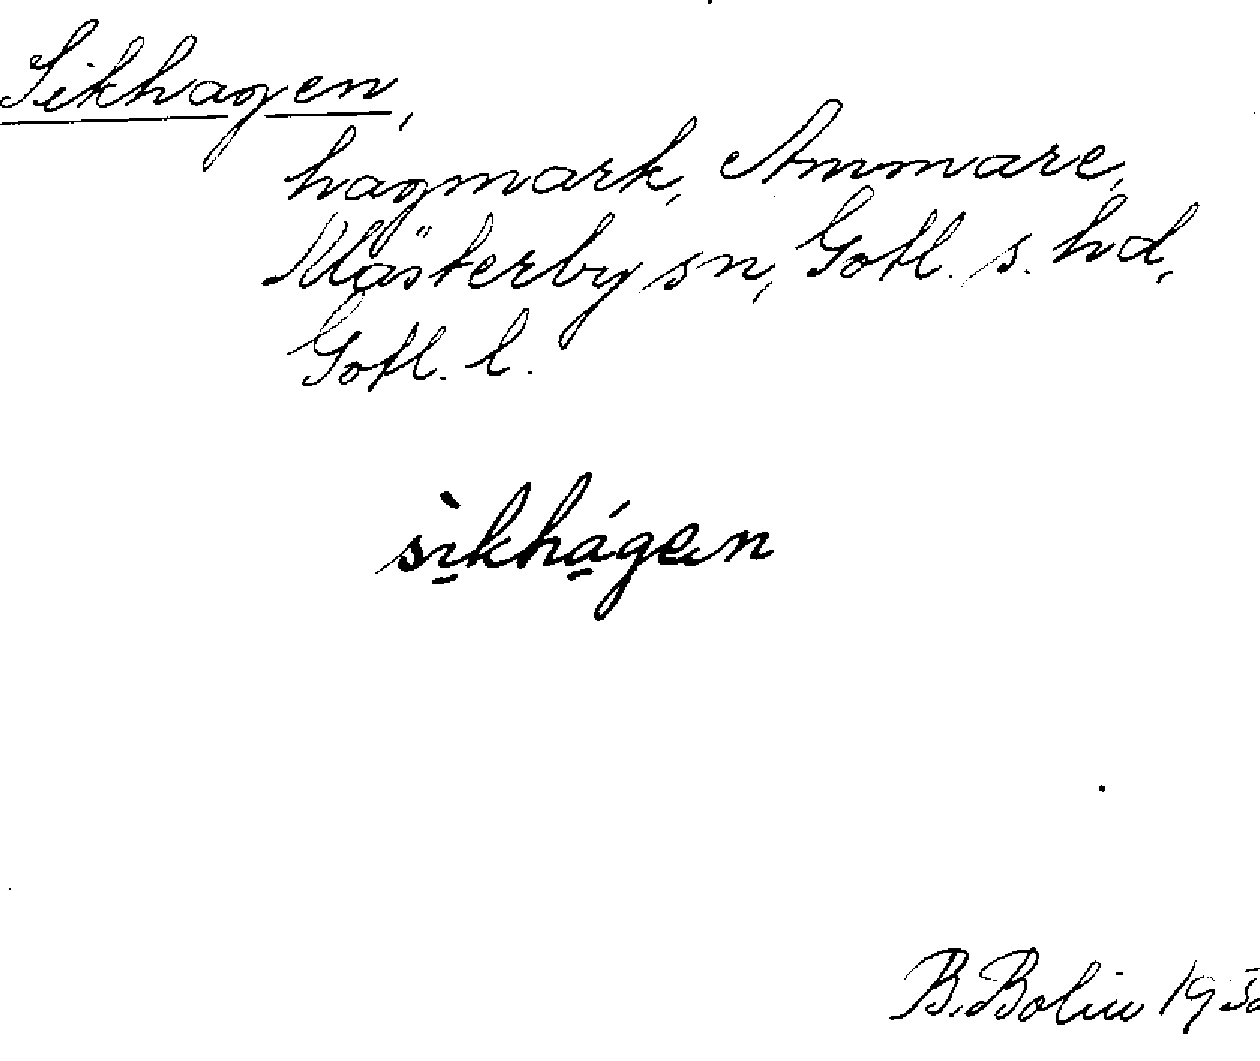 Sikhagen,
hagmark, Ammare,
Klästerby sn, Gotl. s. hd,
Gotl. l.
sìkhágen
B. Bolin